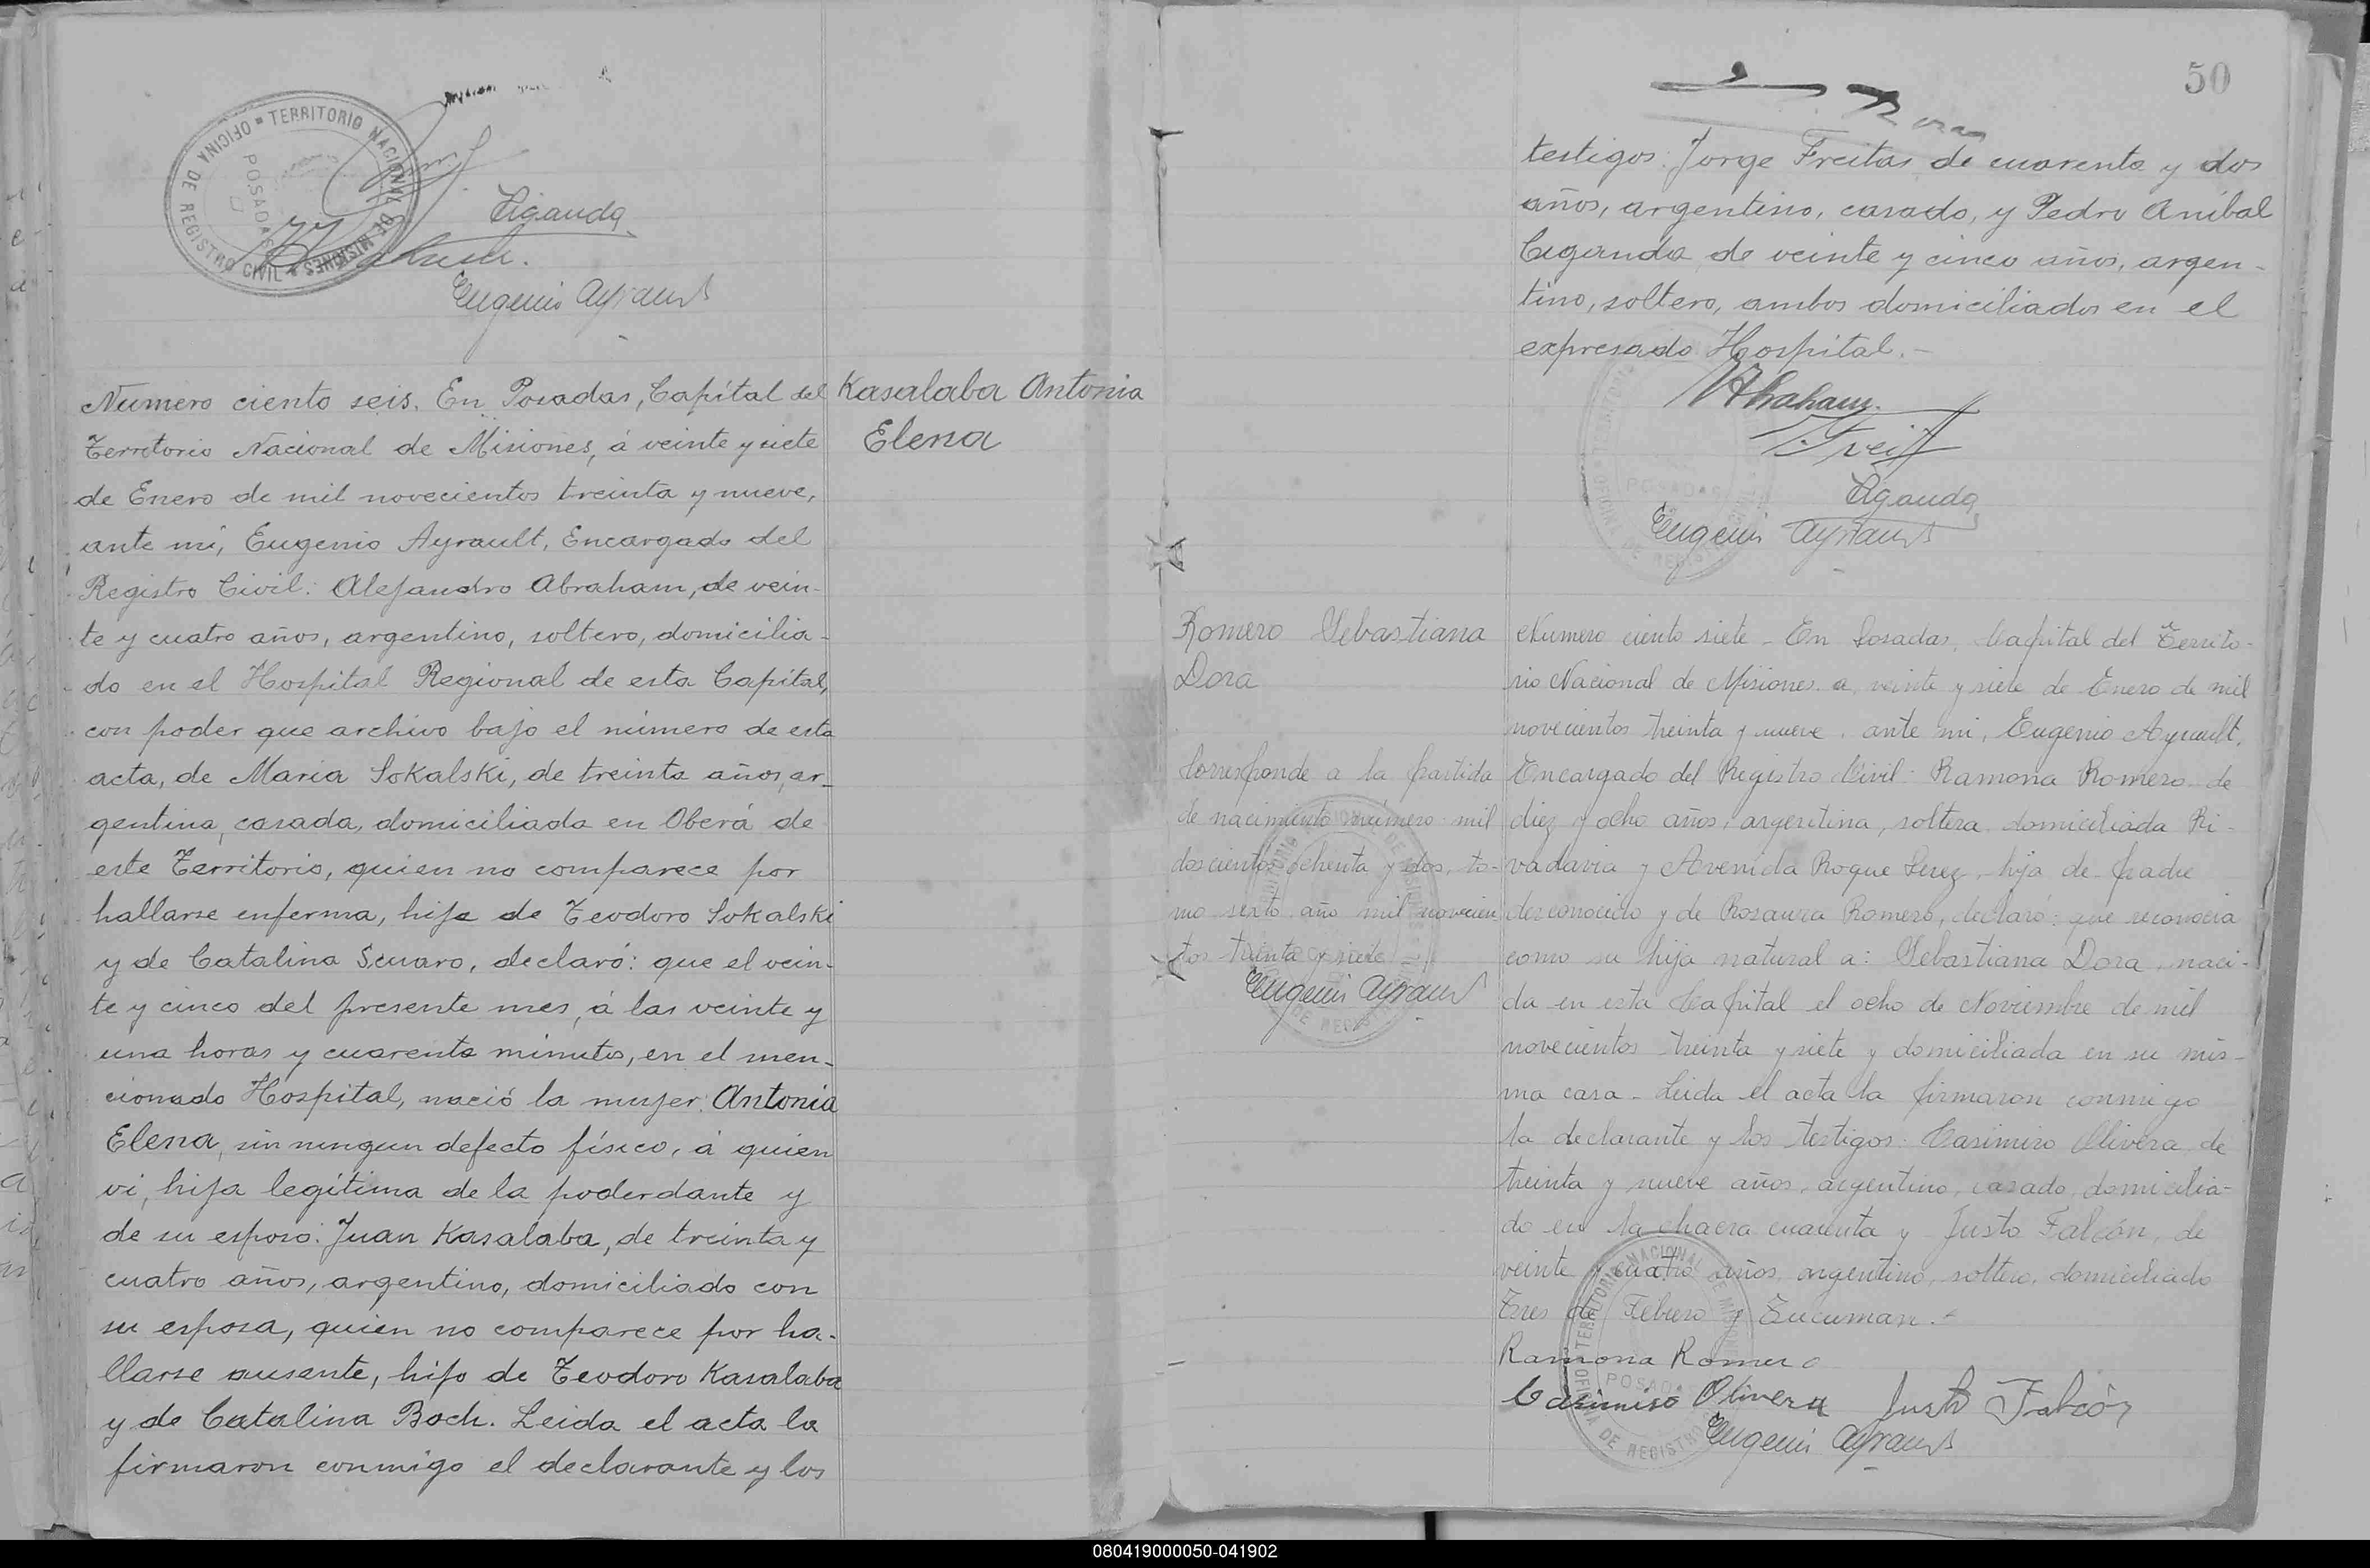 OFICINA DE REGISTRO CIVIL TERRITORIO NACIONAL DE MISIONES
POSADAS
Ciganda
Eugenio Ayrault
Kasalaba Antonia
Elena
Número ciento seis. En Posadas, Capital del
Territorio Nacional de Misiones, á veinte y siete
de Enero de mil novecientos treinta y nueve,
ante mí, Eugenio Ayrault, Encargado del
Registro Civil: Alejandro Abraham, de vein-
te y cuatro años, argentino, soltero, domicilia-
do en el Hospital Regional de esta Capital,
con poder que archivo bajo el número de esta
acta, de María Sokalski, de treinta años, ar-
gentina, casada, domiciliada en Oberá de
este Territorio, quien no comparece por
hallarse enferma, hija de Teodoro Sokalski
y de Catalina Scuaro, declaró: que el vein-
te y cinco del presente mes, á las veinte y
una horas y cuarenta minutos, en el men-
cionado Hospital, nació la mujer: Antonia
Elena, sin ningun defecto físico, á quien
vi, hija legítima de la poderdante y
de su esposo: Juan Kasalaba, de treinta y
cuatro años, argentino, domiciliado con
su esposa, quien no comparece por ha-
llarse ausente, hijo de Teodoro Kasalaba
y de Catalina Boch. Leida el acta la
firmaron conmigo el declarante y los
50
testigos: Jorge Freitas de cuarenta y dos
años, argentino, casado, y Pedro Aníbal
Ciganda de veinte y cinco años, argen-
tino, soltero, ambos domiciliados en el
expresado Hospital.-
Abraham
Ciganda
Eugenio Ayrault
Romero Sebastiana
Dora
Corresponde a la partida
de nacimiento número mil
doscientos ochenta y dos, to-
mo sexto año mil novecien
tos treinta y siete
Eugenio Ayrault
Numero ciento siete - En Posadas, Capital del Territo-
rio Nacional de Misiones a, veinte y siete de Enero de mil
novecientos treinta y nueve, ante mi, Eugenio Ayrault,
Encargado del Registro Civil: Ramona Romero de
diez y ocho años, argentina, soltera domiciliada Ri-
vadavia y Avenida Roque Perez, hija de padre
desconocido y de Rosaura Romero, declaró: que reconocia
como su hija natural a: Sebastiana Dora, naci-
da en esta Capital el ocho de Noviembre de mil
novecientos treinta y siete y domiciliada en su mis-
ma casa - Leida el acta la firmaron conmigo
la declarante y los testigos: Casimiro Olivera de
treinta y nueve años, argentino, casado, domicilia-
do en la chacra cuarenta y Justo Falcón, de
veinte y cuatro años, argentino, soltero, domiciliado
Tres de Febrero y Tucuman.-
Ramona Romero
Casimiro Olivera Justo Falcón
Eugenio Ayrault
080419000050-041902